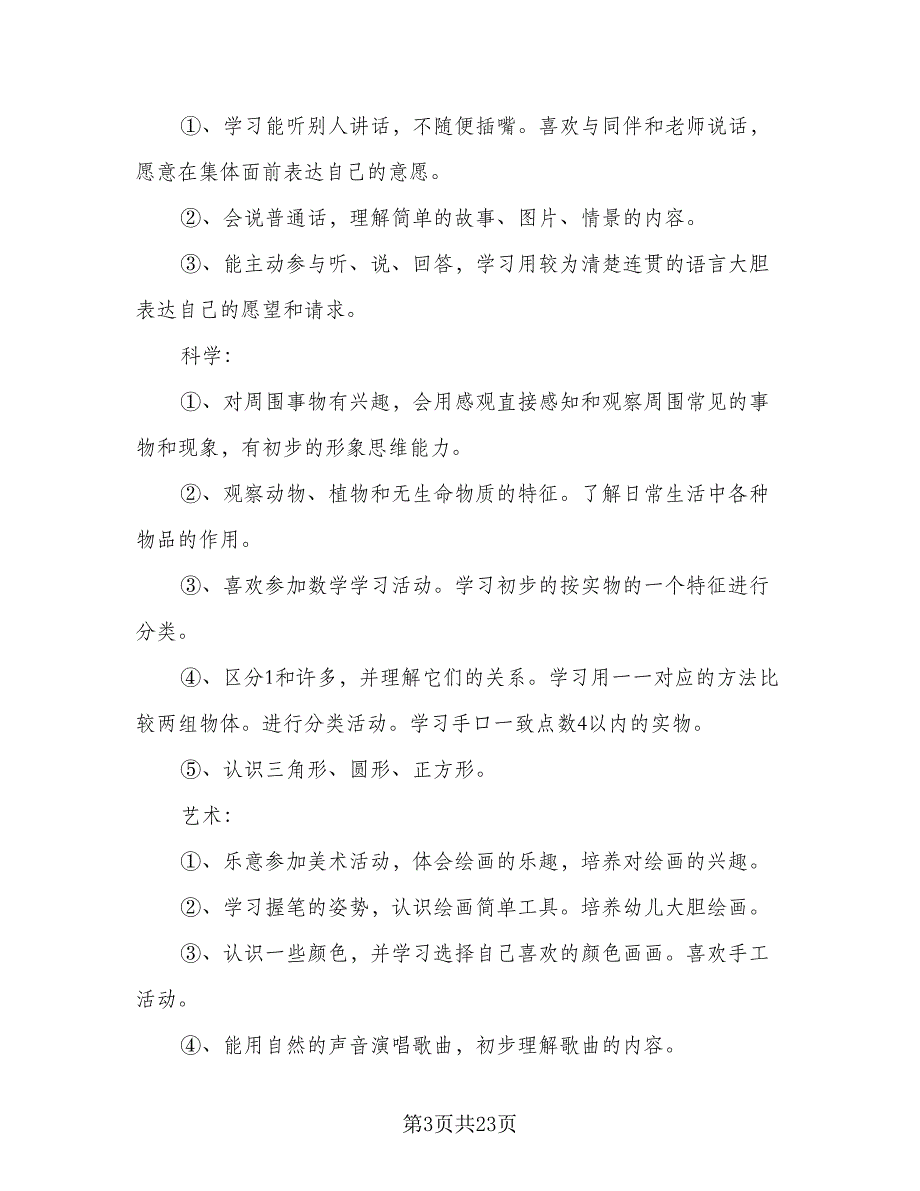 ①、学习能听别人讲话，不随便插嘴。喜欢与同伴和老师说话，
愿意在集体面前表达自己的意愿。
②、会说普通话，理解简单的故事、图片、情景的内容。
③、能主动参与听、说、回答，学习用较为清楚连贯的语言大胆
表达自己的愿望和请求。
科学：
①、对周围事物有兴趣，会用感观直接感知和观察周围常见的事
物和现象，有初步的形象思维能力。
②、观察动物、植物和无生命物质的特征。了解日常生活中各种
物品的作用。
③、喜欢参加数学学习活动。学习初步的按实物的一个特征进行
分类。
④、区分1和许多，并理解它们的关系。学习用一一对应的方法比
较两组物体。进行分类活动。学习手口一致点数4以内的实物。
⑤、认识三角形、圆形、正方形。
艺术：
①、乐意参加美术活动，体会绘画的乐趣，培养对绘画的兴趣。
②、学习握笔的姿势，认识绘画简单工具。培养幼儿大胆绘画。
③、认识一些颜色，并学习选择自己喜欢的颜色画画。喜欢手工
活动。
④、能用自然的声音演唱歌曲，初步理解歌曲的内容。
第3页共23页